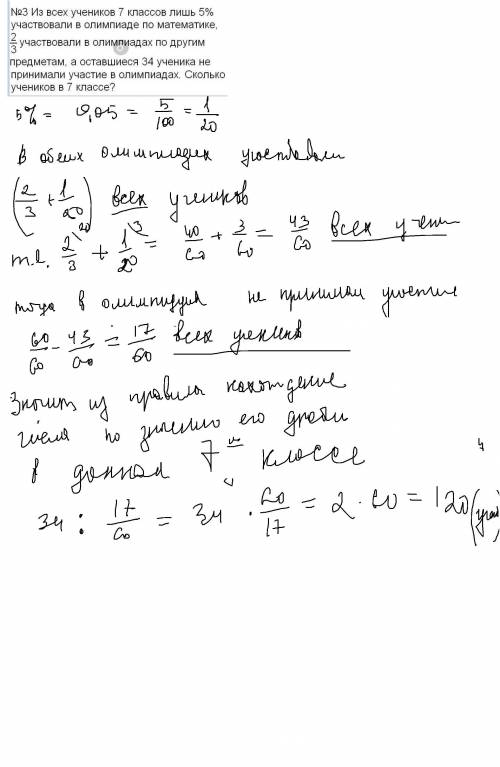 №3 Из всех учеников 7 классов лишь 5%
участвовали в олимпиаде по математике,
2/3 участвовали в олимпиадах по другим
предметам, а оставшиеся 34 ученика не
принимали участие в олимпиадах. Сколько
учеников в 7 классе?
5% = 0,05 = 5/100 = 1/20
В обеих олимпиадах участвовали
(2/3 + 1/20) всех учеников
т.е. 2/3 + 1/20 = 40/60 + 3/60 = 43/60 всех учен
тогда в олимпиадах не принимали участие
60/60 - 43/60 = 17/60 всех учеников
Значит из правила нахождение
числа по значению его дроби
в данном 7 классе
34 : 17/60 = 34 · 60/17 = 2 · 60 = 120